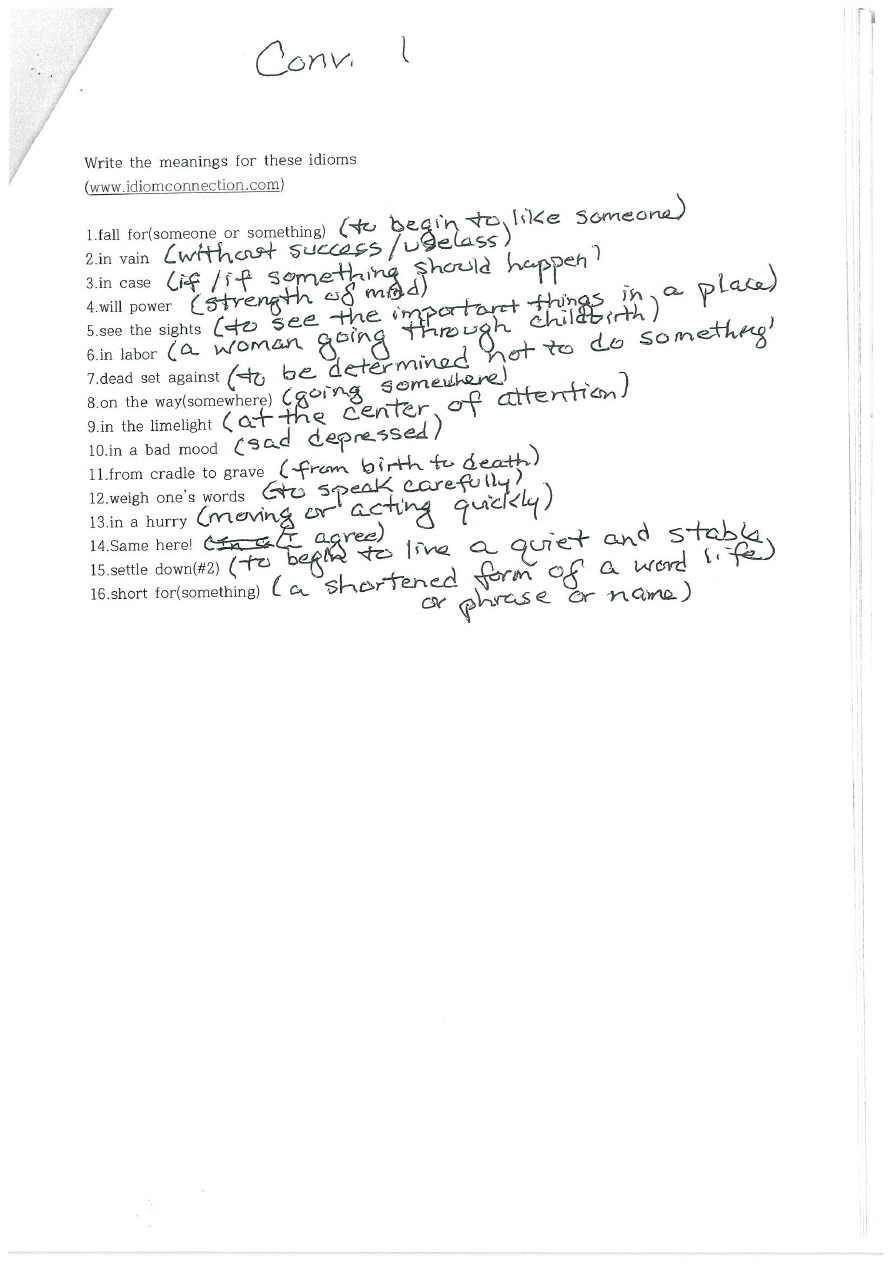 Conv. 1
Write the meanings for these idioms
(www.idiomconnection.com)
1.fall for(someone or something) (to begin to like someone)
2.in vain (without success/useless)
3.in case (if/if something should happen)
4.will power (strength of mind)
5.see the sights (to see the important things in a place)
6.in labor (a woman going through childbirth)
7.dead set against (to be determined not to do something)
8.on the way(somewhere) (going somewhere)
9.in the limelight (at the center of attention)
10.in a bad mood (sad depressed)
11.from cradle to grave (from birth to death)
12.weigh one's words (to speak carefully)
13.in a hurry (moving or acting quickly)
14.Same here! (I agree)
15.settle down(#2) (to begin to live a quiet and stable life)
16.short for(something) (a shortened form of a word
or phrase or name)